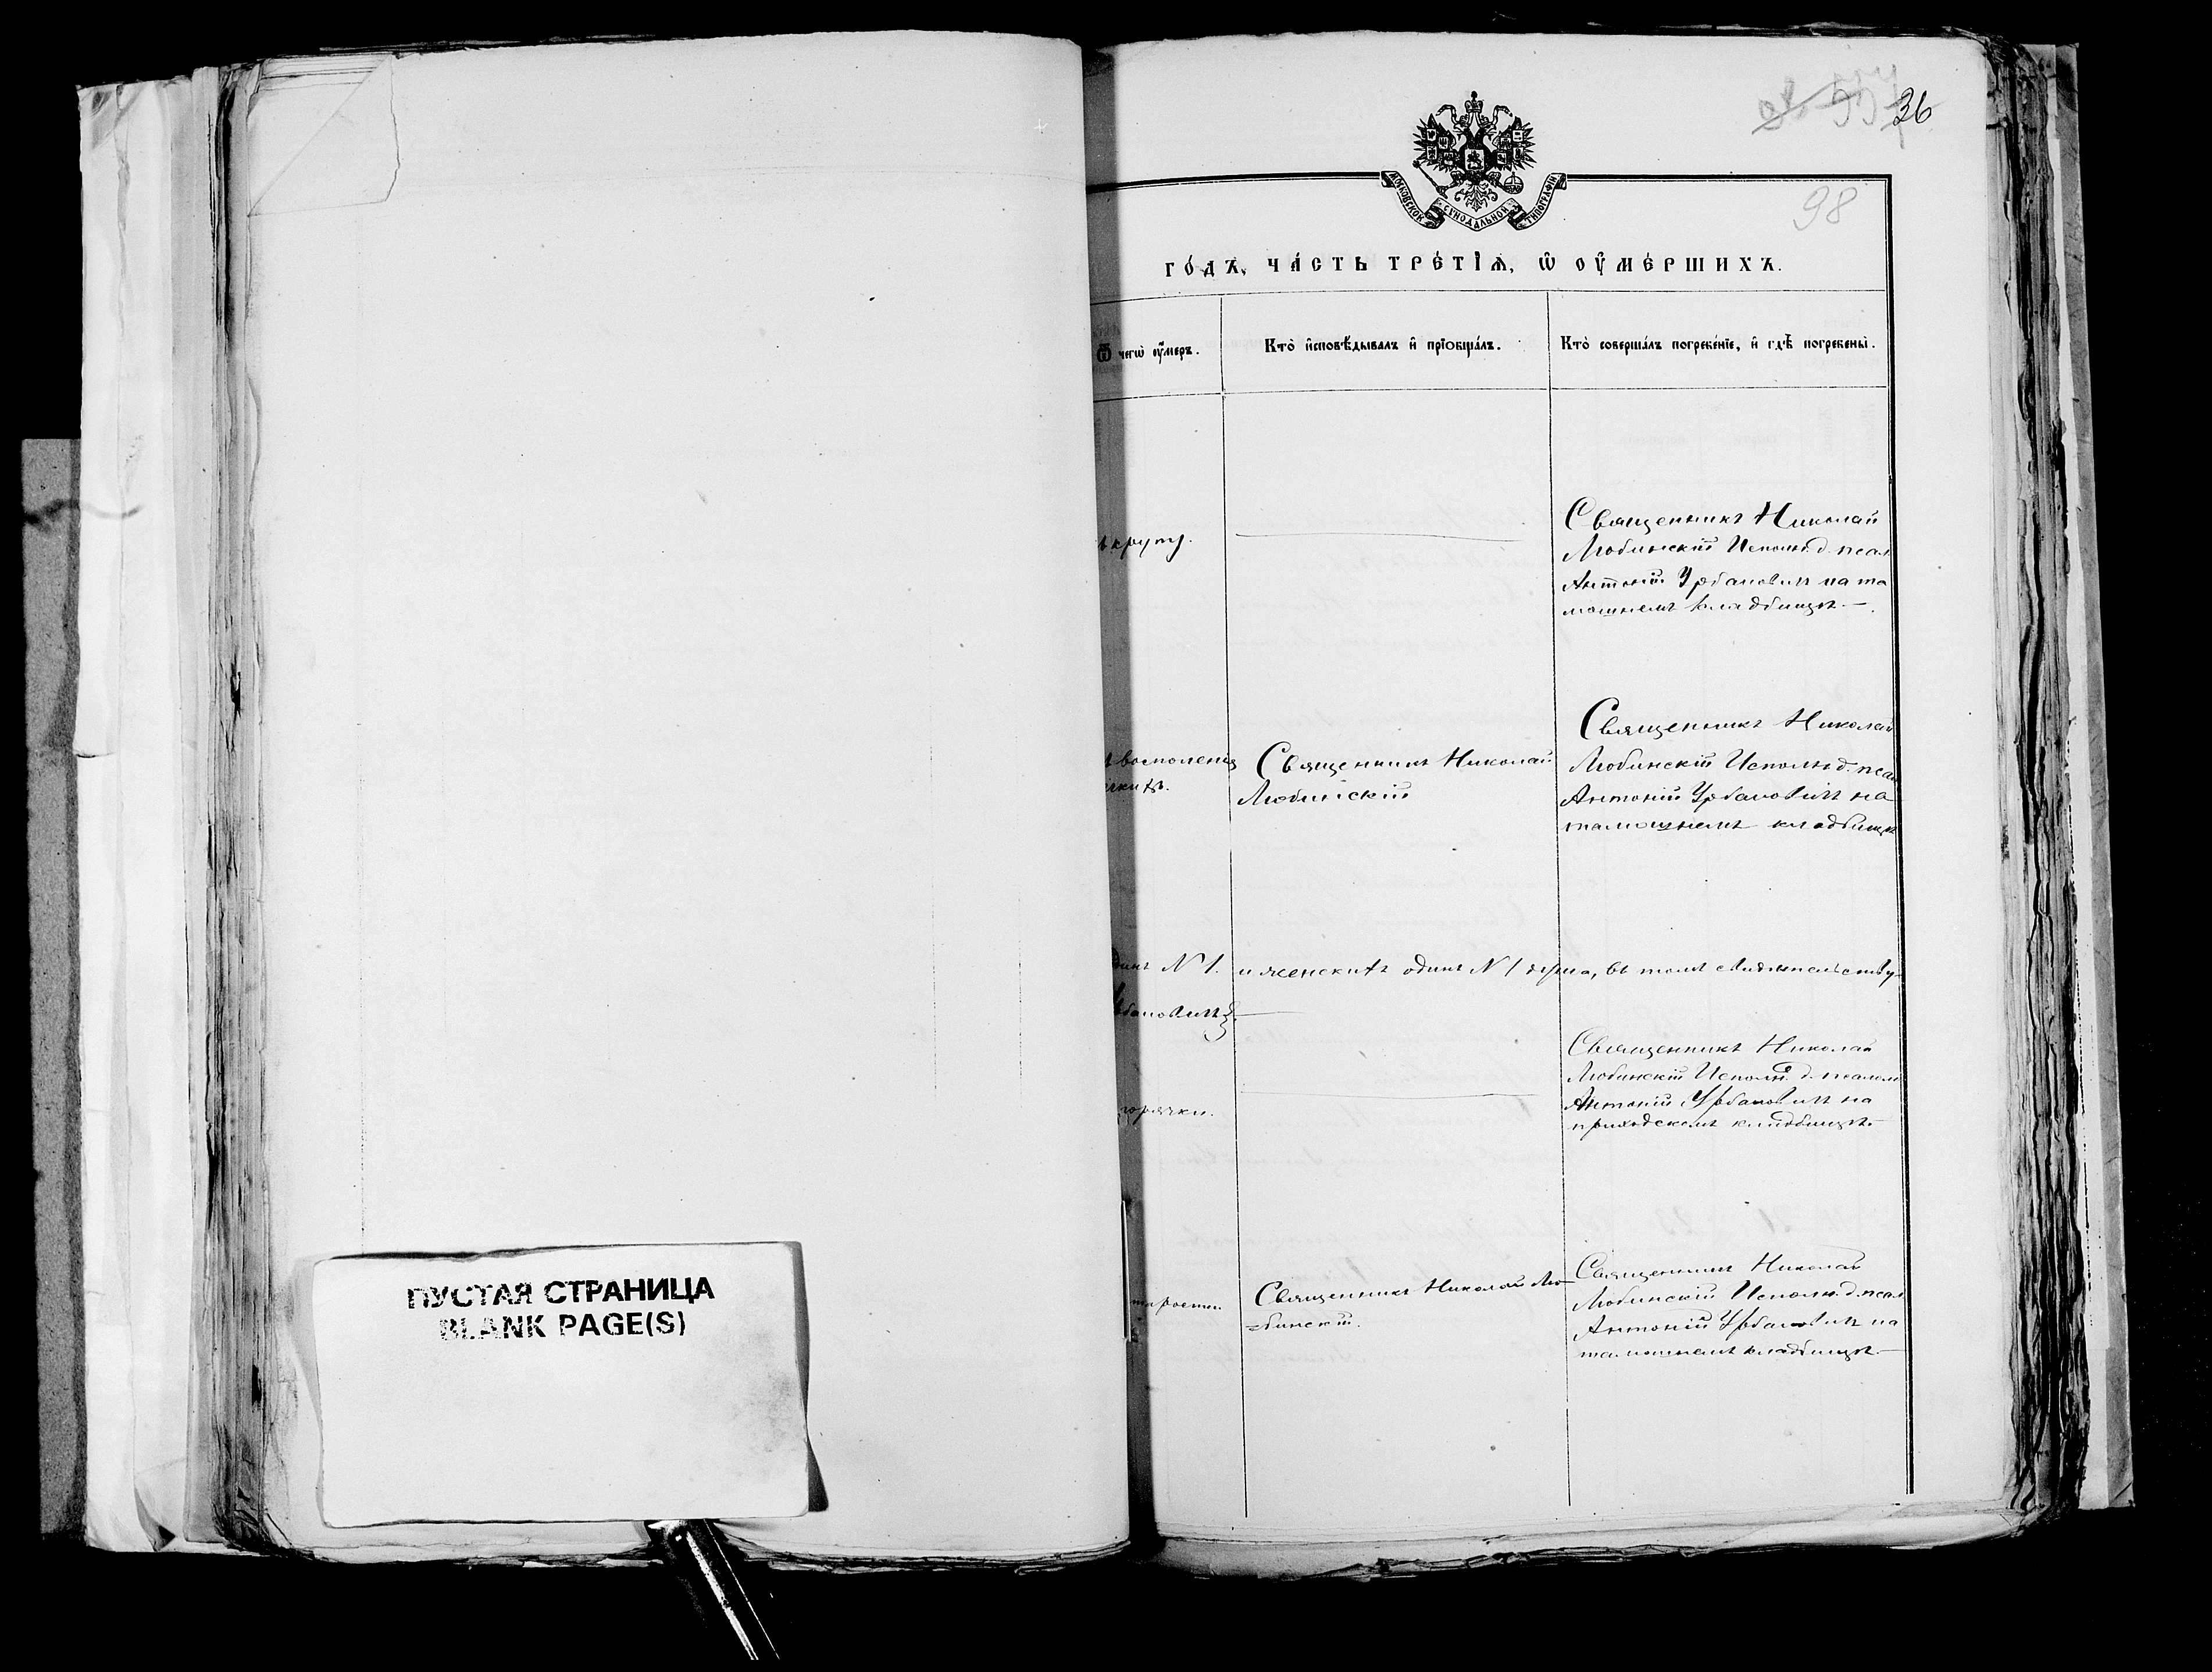 36
98
МОСКОВСКОЙ СѴНОДАЛЬНОЙ ТИПОГРАФІИ
ГО́ДЪ, ЧА́СТЬ ТРЕ́ТІѦ, Ѡ҆ ОУ҆МЕ́РШИХЪ.
Ѿ чегѡ̀ оу҆́меръ.
Кто̀ и҆сповѣ́дывалъ и҆ прїѡбща́лъ.
Кто̀ соверша́лъ погребе́нїе, и҆ гдѣ̀ погребены̀.
крупу.
Священникъ Николай
Любинскій Исполн. д. псал
Антоній Урбановичъ на та
мошнемъ кладбищѣ.—
восполенія
Священникъ Николай
Любинскій
Священникъ Николай
Любинскій Исполн. д. псал
Антоній Урбановичъ на
тамошнемъ кладбищѣ
динъ № 1. и женскихъ одинъ № 1 въ томъ свидѣтельству-
бановичъ
горячки.
Священникъ Николай
Любинскій Исполн. д. псалом
Антоній Урбановичъ на
приходскомъ кладбищѣ.
тарости
Священникъ Николай Лю-
бинскій.
Священникъ Николай
Любинскій Исполн. д. псал
Антоній Урбановичъ на
тамошнемъ кладбищѣ.—
ПУСТАЯ СТРАНИЦА
BLANK PAGE(S)